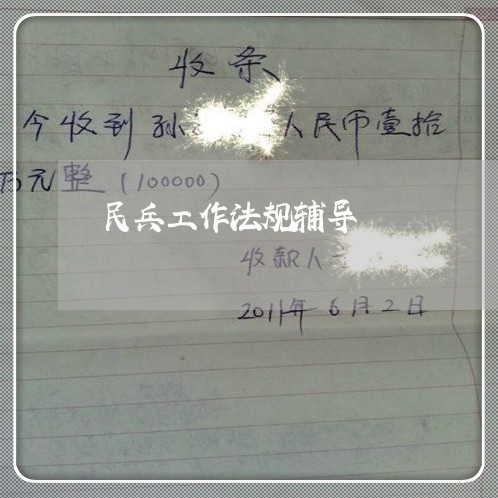 收条
今收到孙 人民币壹拾
万元整（100000）
民兵工作法规辅导
收款人：
2011年6月2日